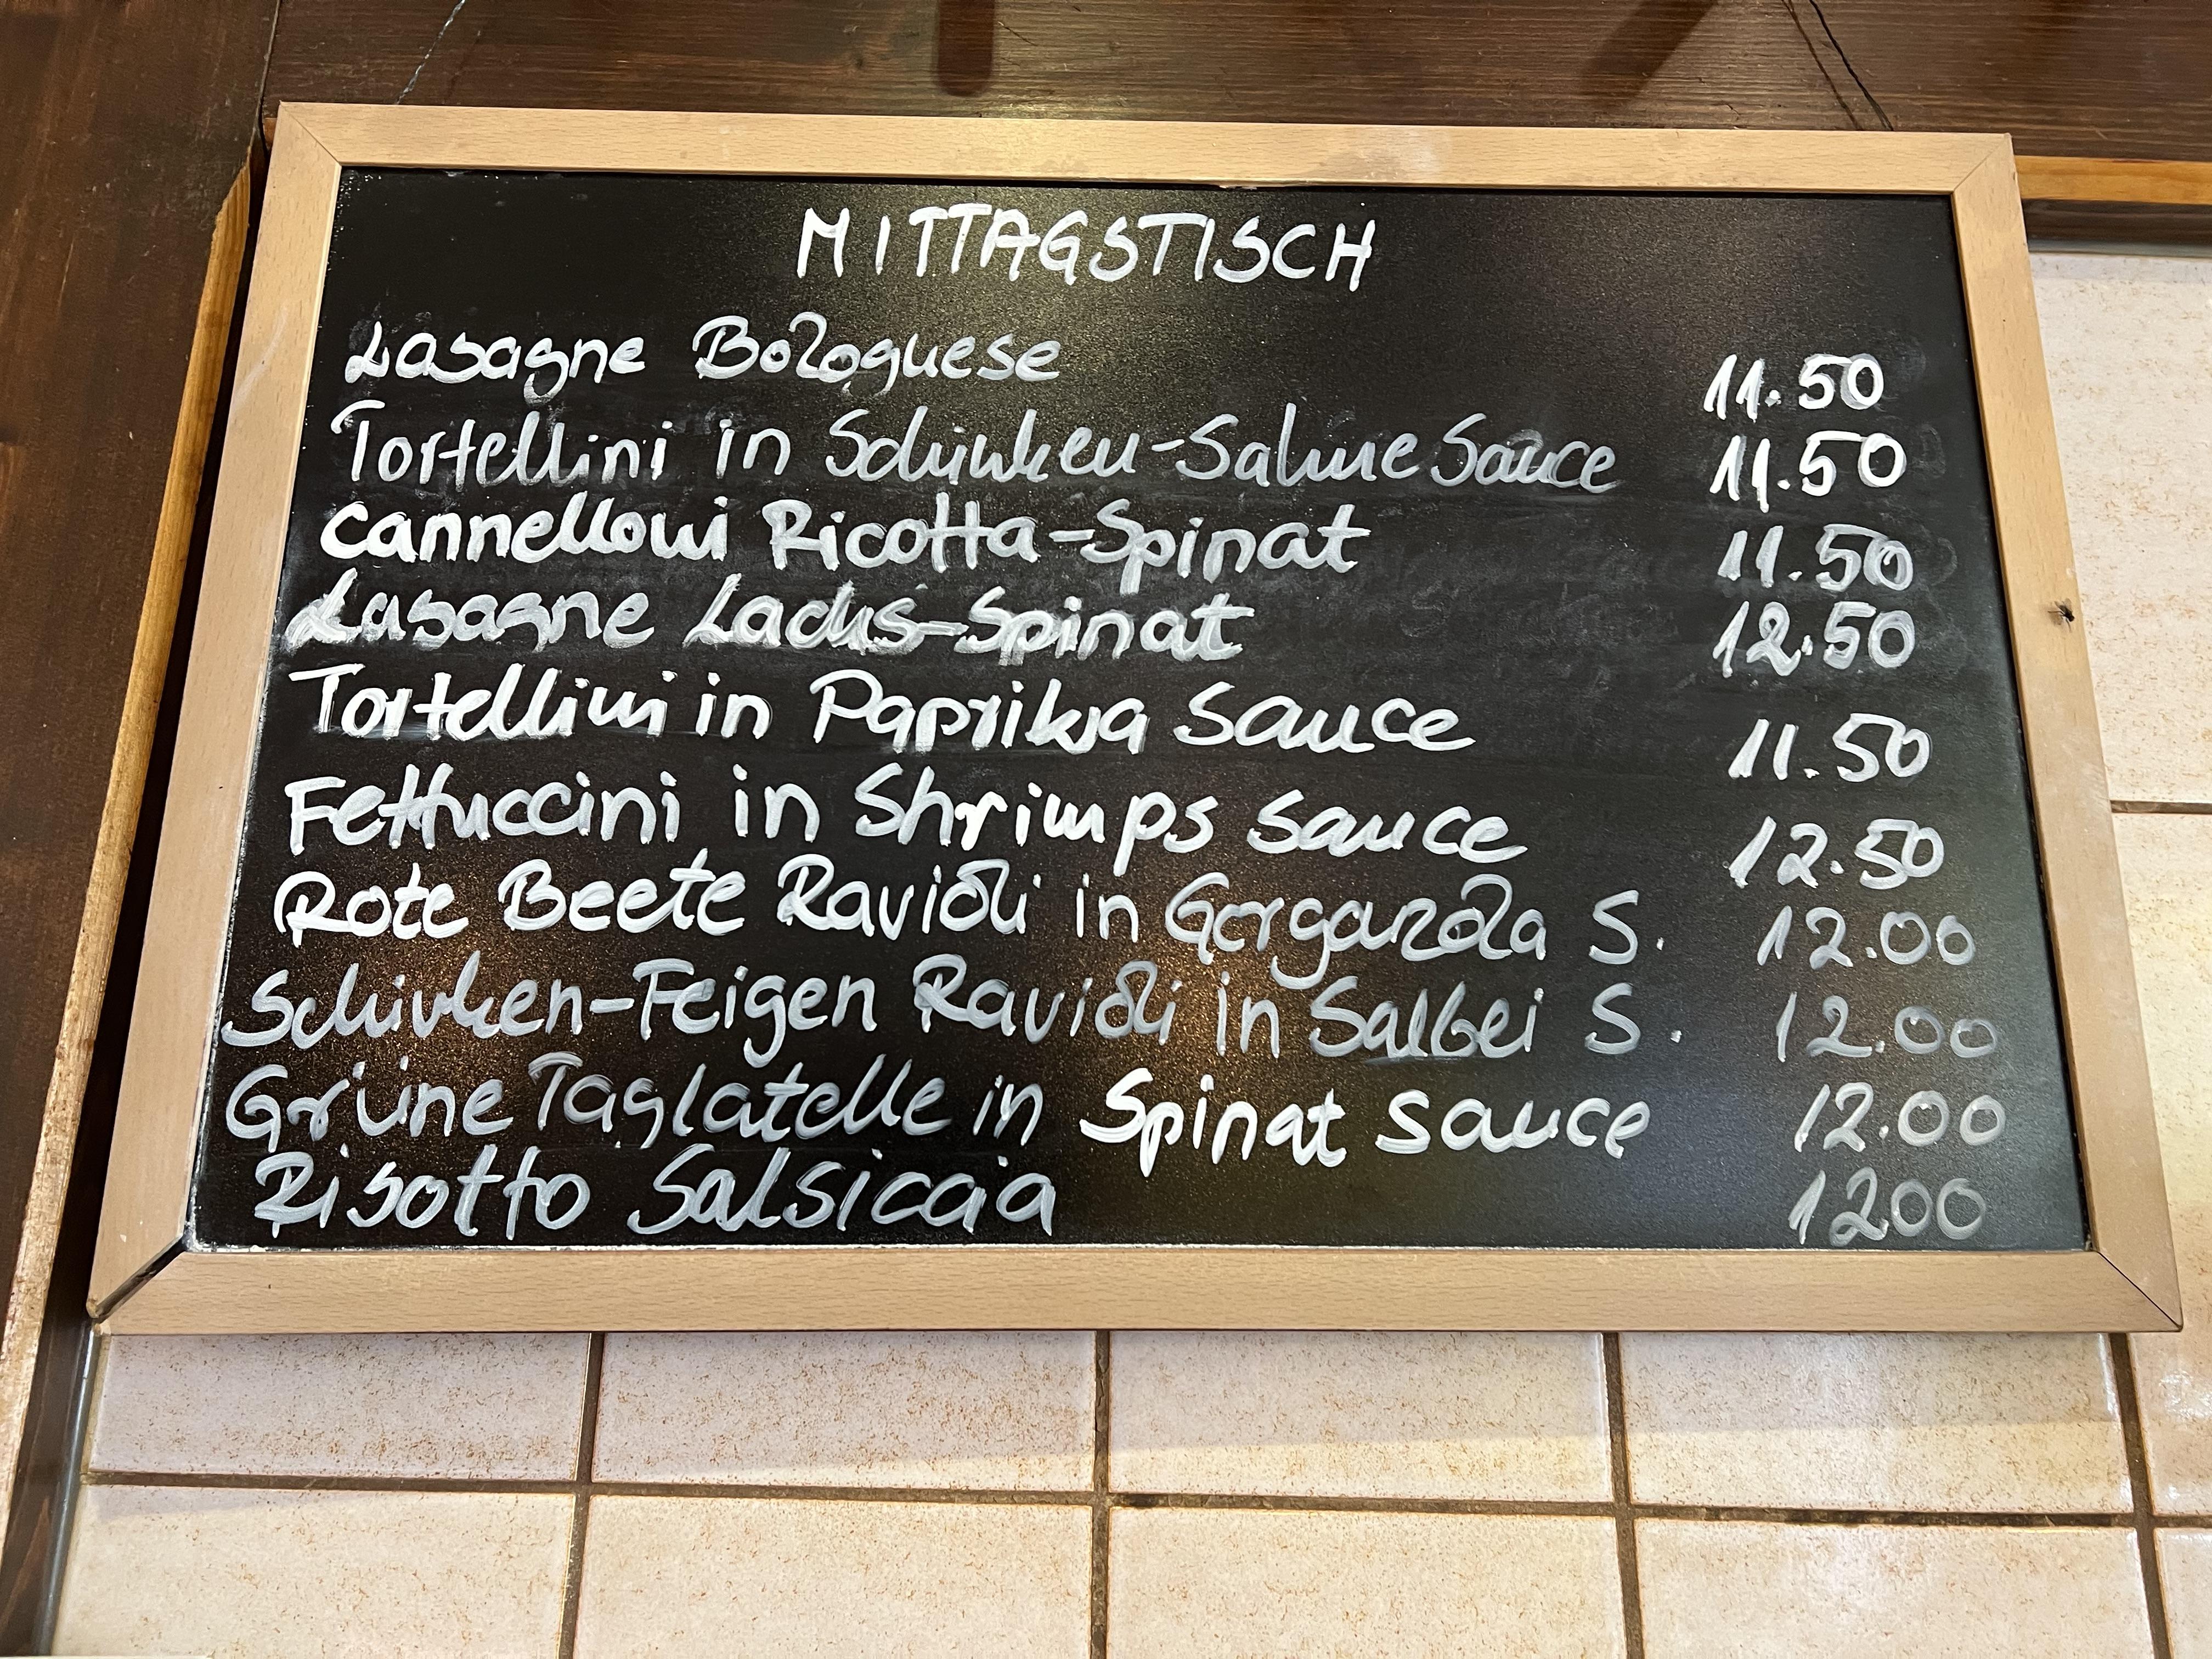 MITTAGSTISCH
Lasagne Bolognese 11.50
Tortellini in Schinken-Sahne Sauce 11.50
Cannelloni Ricotta-Spinat 11.50
Lasagne Lachs-Spinat 12.50
Tortellini in Paprika Sauce 11.50
Fettuccini in Shrimps Sauce 12.50
Rote Beete Ravioli in Gorgonzola S. 12.00
Schinken-Feigen Ravioli in Salbei S. 12.00
Grüne Taglatelle in Spinat Sauce 12.00
Risotto Salsiccia 1200